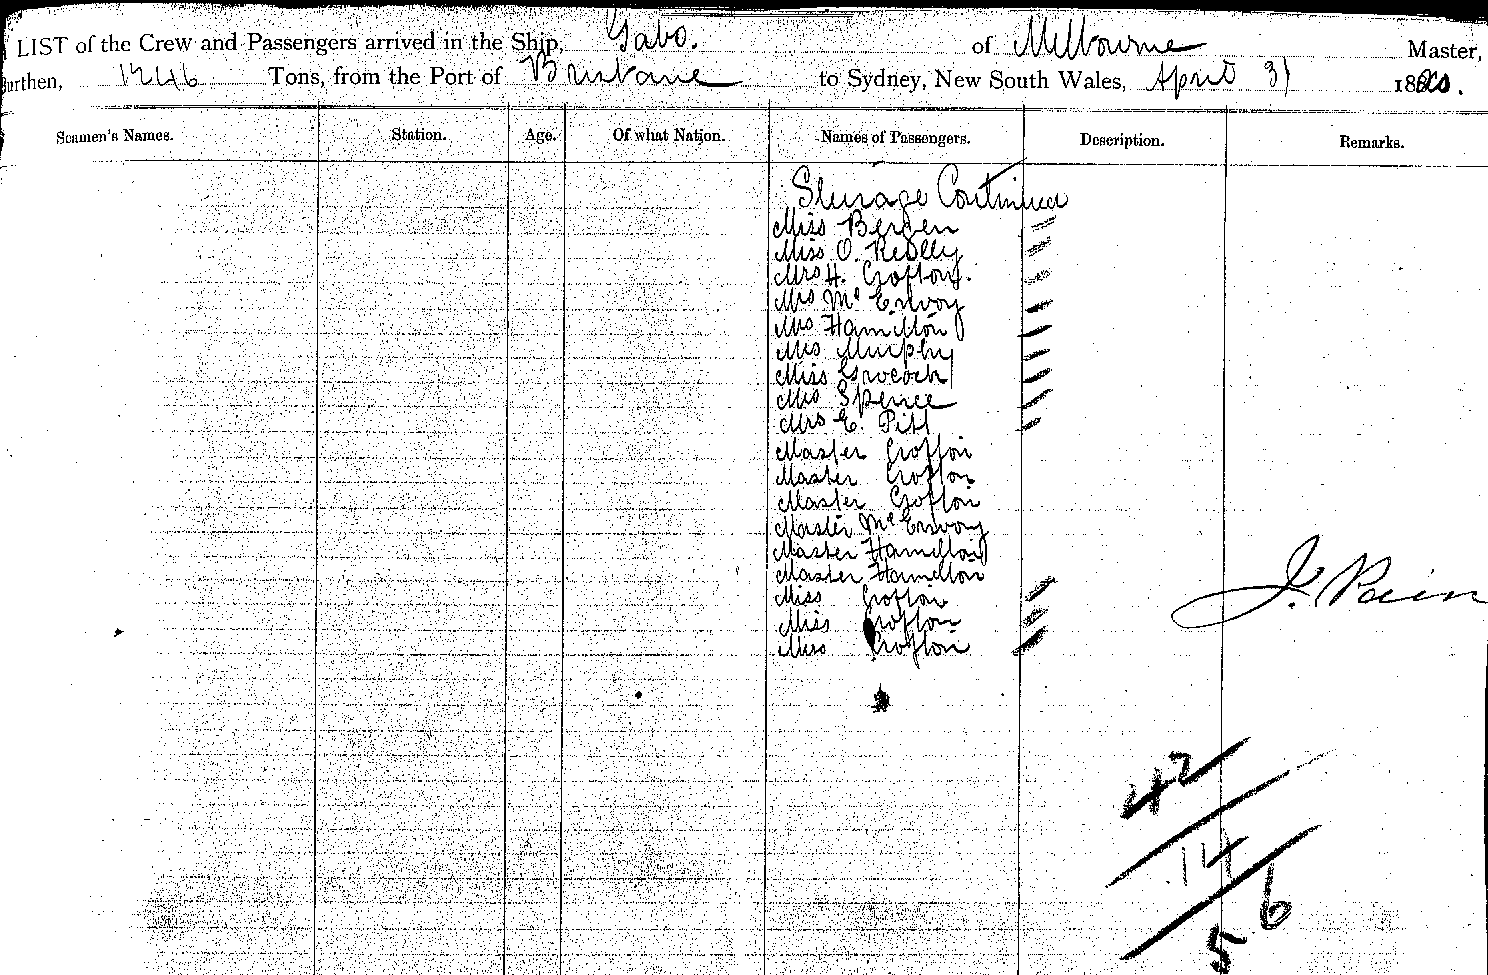 LIST of the Crew and Passengers arrived in the Ship, Gabo. of Melbourne Master,
Burthen, 1246 Tons, from the Port of Brisbane to Sydney, New South Wales, April 31 18
Seamen's Names. Station. Age. Of what Nation. Names of Passengers. Description. Remarks.
Steerage Continued
Miss Bergen
Miss O. Reilly
Mrs H. Crofton.
Mrs Mc Envoy
Mrs Hamilton
Mrs Murphy
Miss Grocock
Mrs Spence
Mrs E. Pitt
Master Crofton
Master Crofton
Master Crofton
Master Mc Envoy
Master Hamilton
Master Hamilton
Miss Crofton
Miss Crofton
Miss Crofton
J. Pain
42
14
6
5